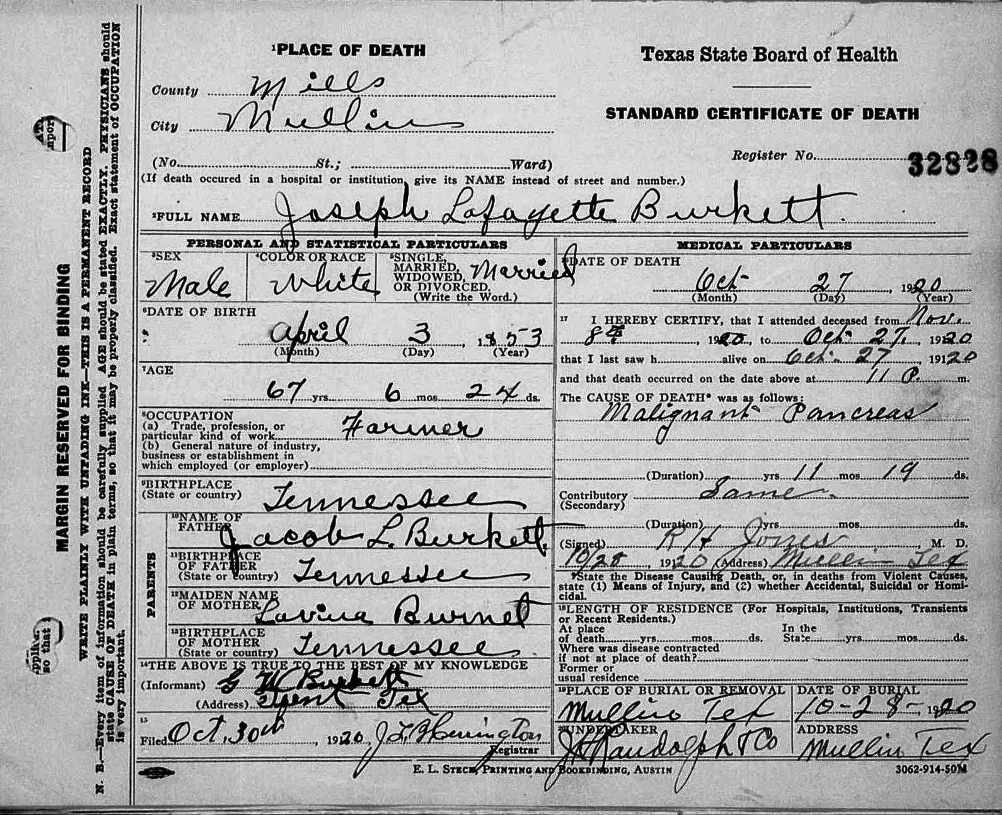 ¹PLACE OF DEATH
County Mills
City Mullin
(No. St.; Ward)
(If death occured in a hospital or institution, give its NAME instead of street and number.)
Texas State Board of Health
STANDARD CERTIFICATE OF DEATH
Register No. 32828
²FULL NAME Joseph Lafayette Burkett.
PERSONAL AND STATISTICAL PARTICULARS
³SEX
Male
⁴COLOR OR RACE
White
⁵SINGLE,
MARRIED,
WIDOWED,
OR DIVORCED.
(Write the Word.)
Married
⁶DATE OF BIRTH
April 3 1853
(Month) (Day) (Year)
⁷AGE
67 yrs 6 mos 24 ds.
⁸OCCUPATION
(a) Trade, profession, or
particular kind of work Farmer
(b) General nature of industry,
business or establishment in
which employed (or employer)
⁹BIRTHPLACE
(State or country) Tennessee
PARENTS
¹⁰NAME OF
FATHER Jacob L. Burkett
¹¹BIRTHPLACE
OF FATHER
(State or country) Tennessee
¹²MAIDEN NAME
OF MOTHER Lavina Burnet
¹³BIRTHPLACE
OF MOTHER
(State or country) Tennessee
¹⁴THE ABOVE IS TRUE TO THE BEST OF MY KNOWLEDGE
(Informant) G W Burkett
(Address) Trent Tex
¹⁵
Filed Oct, 30th, 1920 Registrar
MEDICAL PARTICULARS
DATE OF DEATH
Oct 27, 1920
(Month) (Day) (Year)
¹⁷ I HEREBY CERTIFY, that I attended deceased from Nov.
8th, 1920, to Oct. 27, 1920
that I last saw h alive on Oct. 27 1920
and that death occurred on the date above at 11 P. m.
The CAUSE OF DEATH* was as follows:
Malignant Pancreas
(Duration) yrs 11 mos 19 ds.
Contributory Same.
(Secondary)
(Duration) yrs mos ds.
(Signed) R H Jones M. D.
10/28 1920 (Address) Mullin Tex
*State the Disease Causing Death, or, in deaths from Violent Causes,
state (1) Means of Injury, and (2) whether Accidental, Suicidal or Homi-
cidal.
¹⁸LENGTH OF RESIDENCE (For Hospitals, Institutions, Transients
or Recent Residents.)
At place In the
of death yrs mos ds. State yrs mos ds.
Where was disease contracted
if not at place of death?
Former or
usual residence
¹⁹PLACE OF BURIAL OR REMOVAL
Mullin Tex
DATE OF BURIAL
10-28-1920
²⁰UNDERTAKER
Randolph & Co
ADDRESS
Mullin Tex
E. L. STECK, PRINTING AND BOOKBINDING, AUSTIN
3062-914-50M
MARGIN RESERVED FOR BINDING
WRITE PLAINLY WITH UNFADING INK—THIS IS A PERMANENT RECORD
N. B.—Every item of information should be carefully supplied AGE should be stated EXACTLY. PHYSICIANS should
state CAUSE OF DEATH in plain terms, so that it may be properly classified. Exact statement of OCCUPATION
is very important.